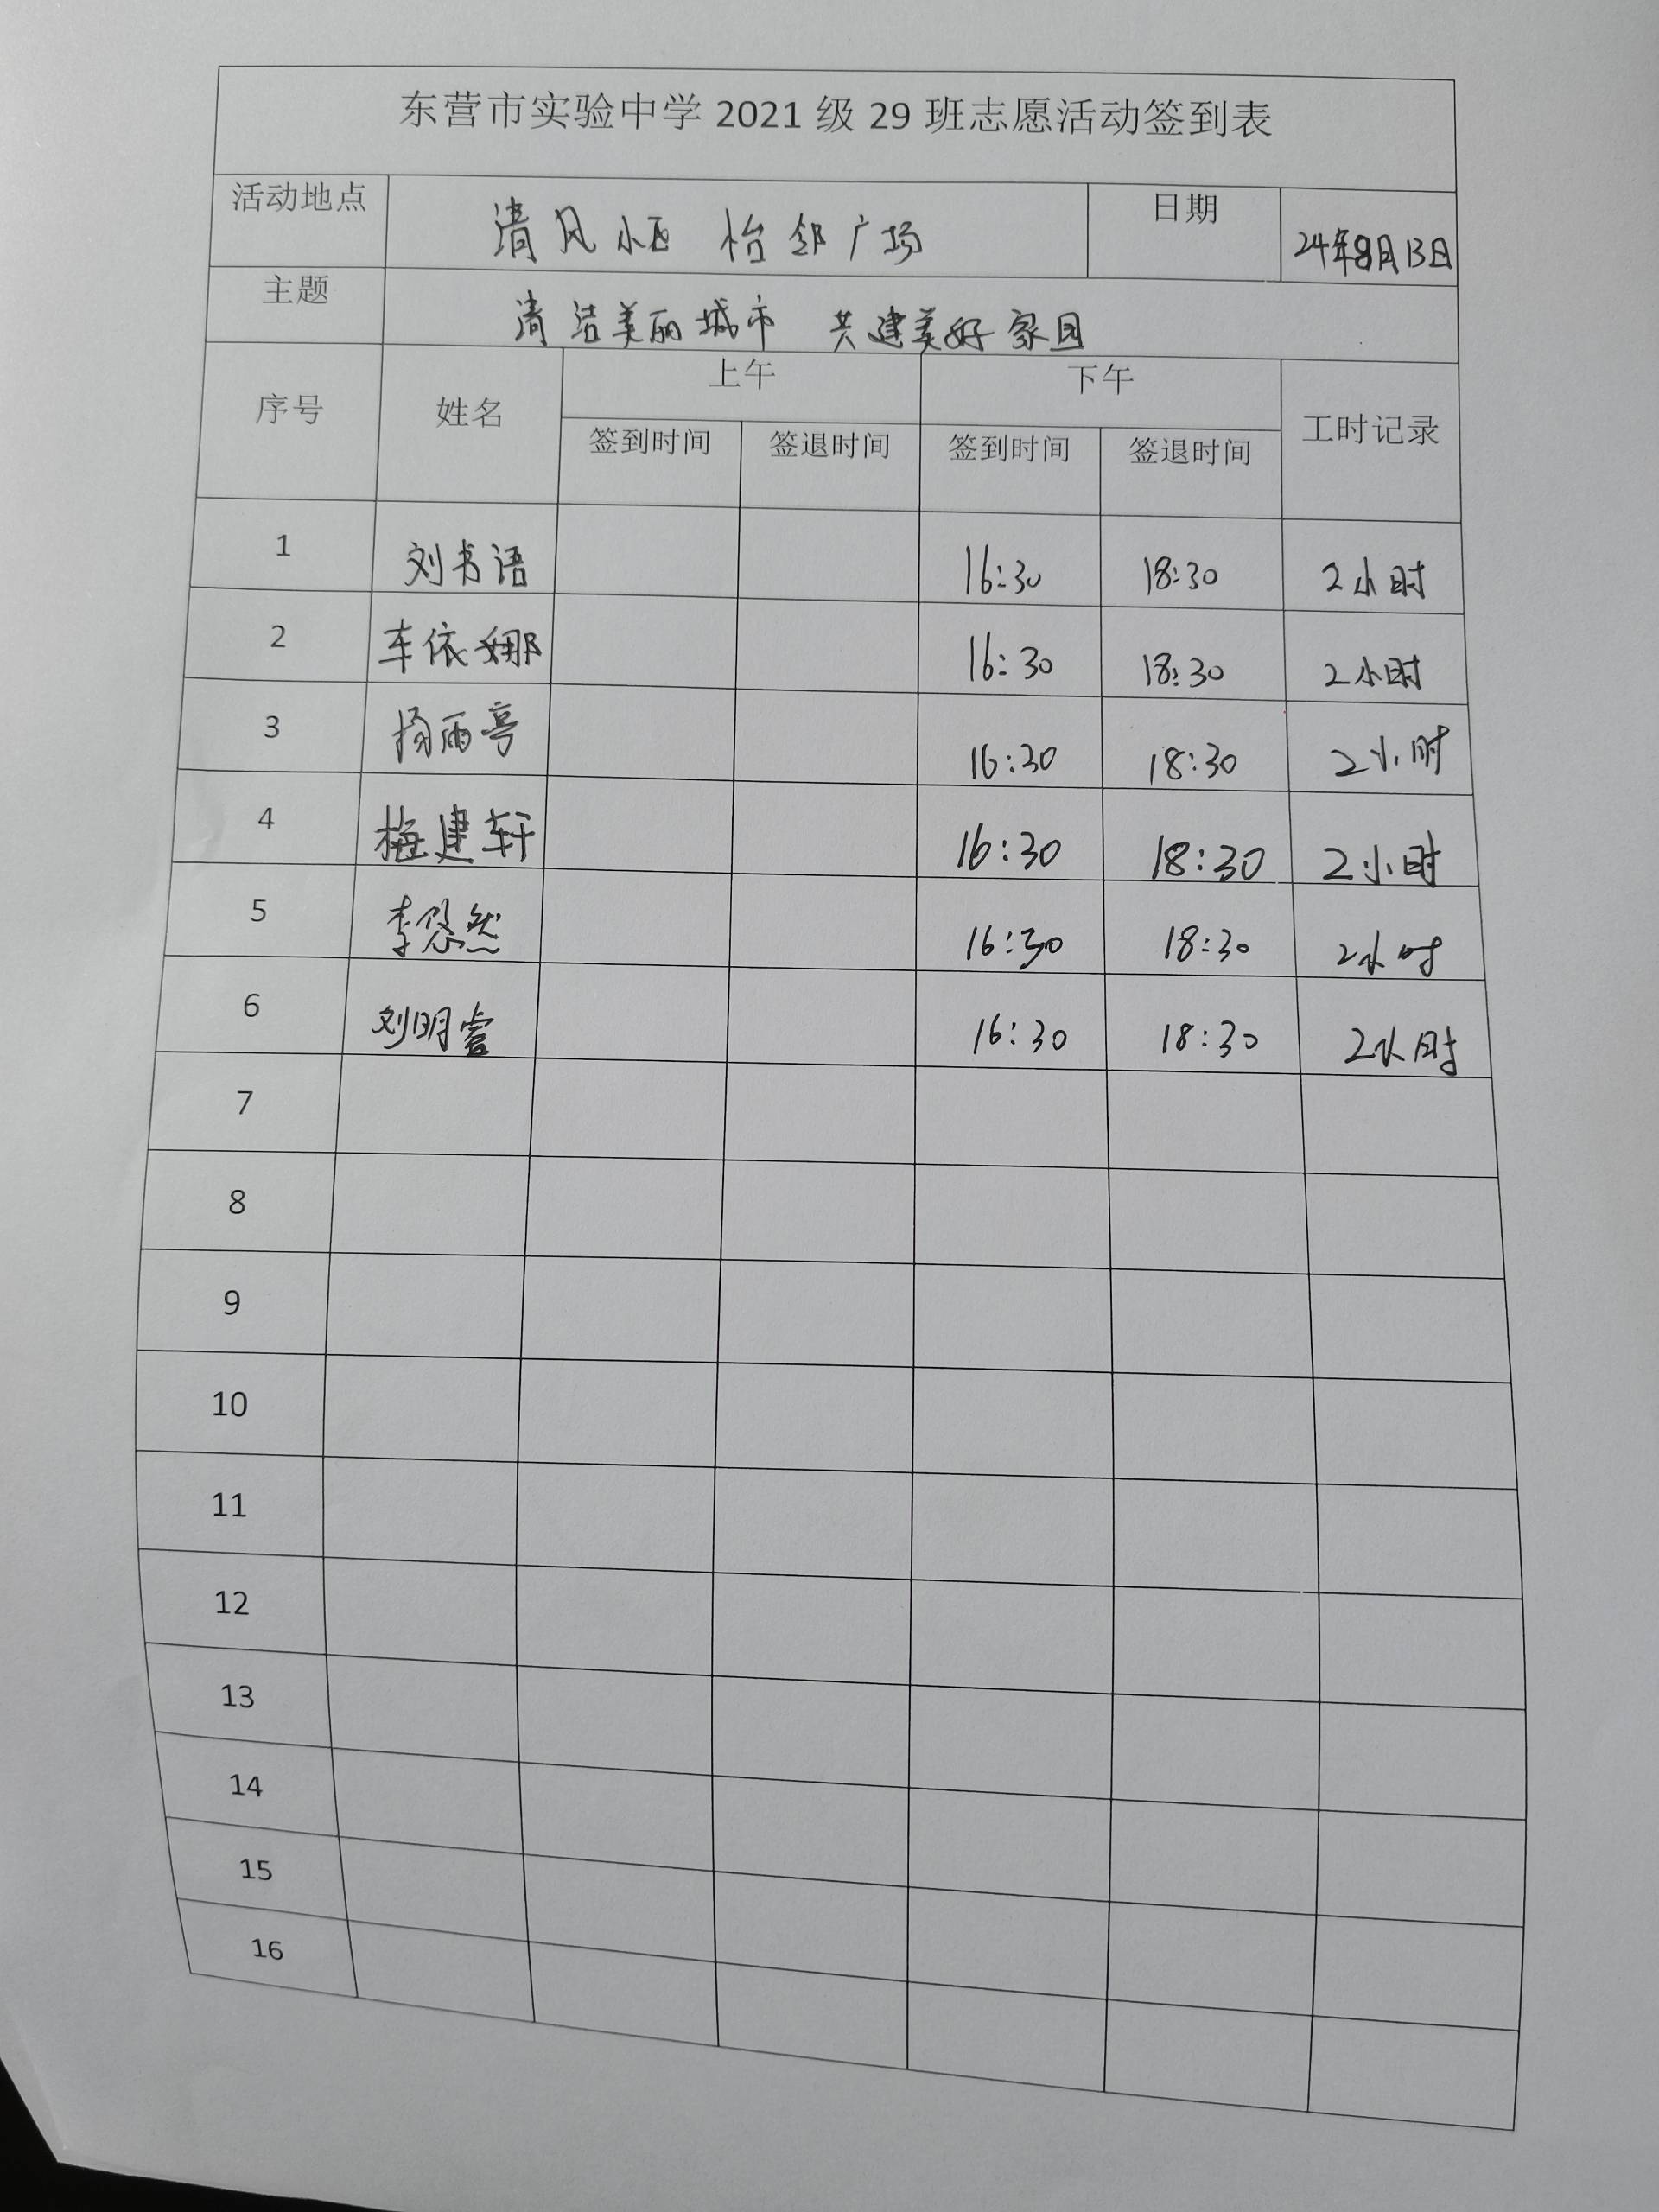 东营市实验中学 2021 级 29 班志愿活动签到表
活动地点 清风小区 怡邻广场 日期 24年8月13日
主题 清洁美丽城市 共建美好家园
序号 姓名 上午 下午 工时记录
签到时间 签退时间 签到时间 签退时间
1 刘书语 16:30 18:30 2小时
2 车依娜 16:30 18:30 2小时
3 杨雨亭 16:30 18:30 2小时
4 梅建轩 16:30 18:30 2小时
5 李悠然 16:30 18:30 2小时
6 刘明 16:30 18:30 2小时
7
8
9
10
11
12
13
14
15
16